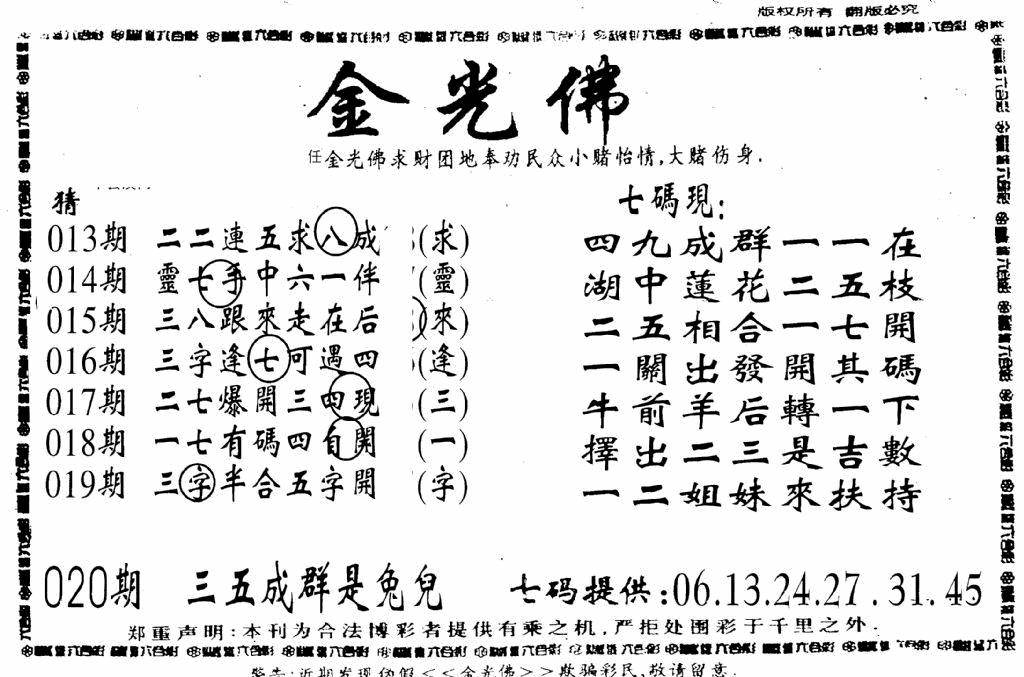 版权所有 翻版必究
金光佛
任金光佛求财团地奉劝民众小赌怡情,大赌伤身.
猜
013期 二二連五求八成 (求)
014期 靈七手中六一伴 (靈)
015期 三八跟來走在后 (來)
016期 三字逢七可遇四 (逢)
017期 二七爆開三四現 (三)
018期 一七有碼四自開 (一)
019期 三字半合五字開 (字)
七碼現:
四九成群一一在
湖中蓮花二五枝
二五相合一七開
一關出發開其碼
牛前羊后轉一下
擇出二三是吉數
一二姐妹來扶持
020期 三五成群是兔兒 七码提供:06.13.24.27.31.45
郑重声明:本刊为合法博彩者提供有乘之机,严拒处围彩于千里之外.
警告:近期发现伪假<<金光佛>>欺骗彩民,敬请留意.